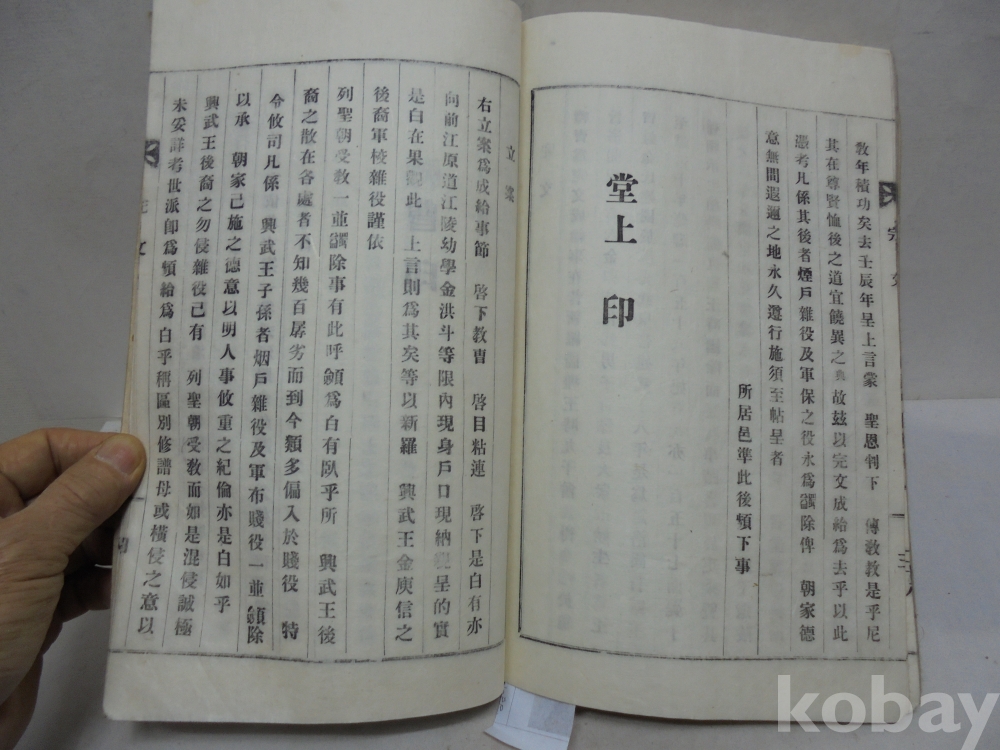 敎年積功矣去壬辰年呈上言蒙 聖恩判下 傳敎敎是乎尼
其在尊賢恤後之道宜饒異之典故玆以完文成給爲去乎以此
憑考凡係其後者煙戶雜役及軍保之役永爲蠲除俾 朝家德
意無間遐邇之地永久遵行施須至帖呈者
所居邑準此後頉下事
堂上 印
立案
右立案爲成給事節 啓下敎曺 啓目粘連 啓下是白有亦
向前江原道江陵幼學金洪斗等限內現身戶口現納 呈的實
是白在果 此 上言則爲其矣等以新羅 興武王金庾信之
後裔軍校雜役謹依
列聖朝受敎一並蠲除事有此呼籲爲白有臥乎所 興武王後
裔之散在各處者不知幾百孱劣而到今類多偏入於賤役 特
令攸司凡係 興武王子孫者烟戶雜役及軍布賤役一並 除
以承 朝家已施之德意以明人事攸重之紀倫亦是白如乎
興武王後裔之勿侵雜役已有 列聖朝受敎而如是混侵誠極
未妥詳考世派卽爲頉給爲白乎 區別修譜母或橫侵之意以
kobay